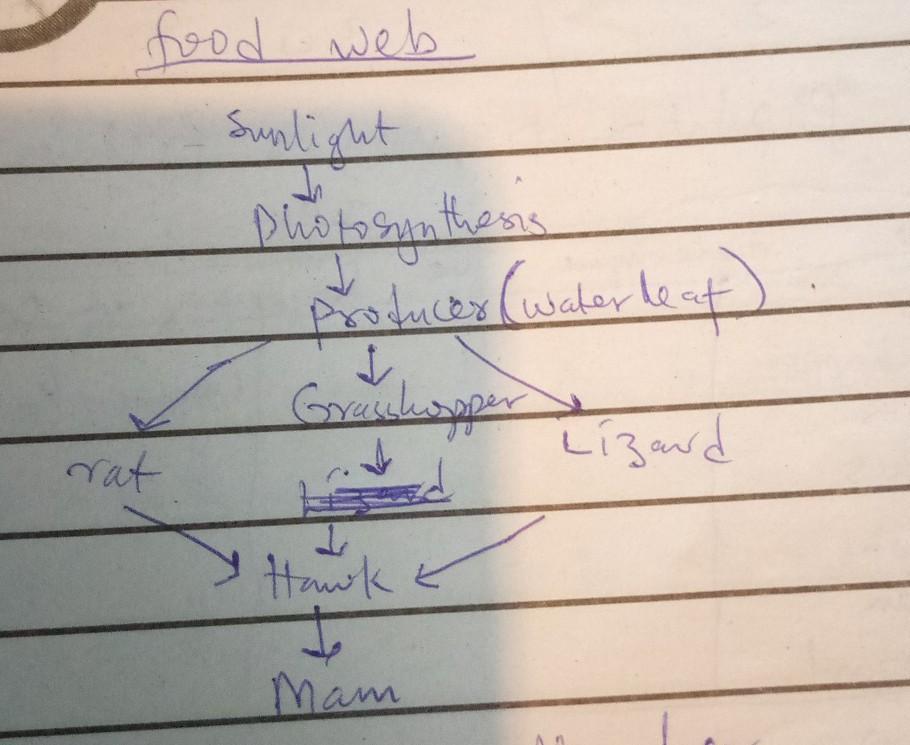 food web
Sunlight
Photosynthesis
Producer (water leaf)
Grasshopper
rat
Lizard
Hawk
Mam